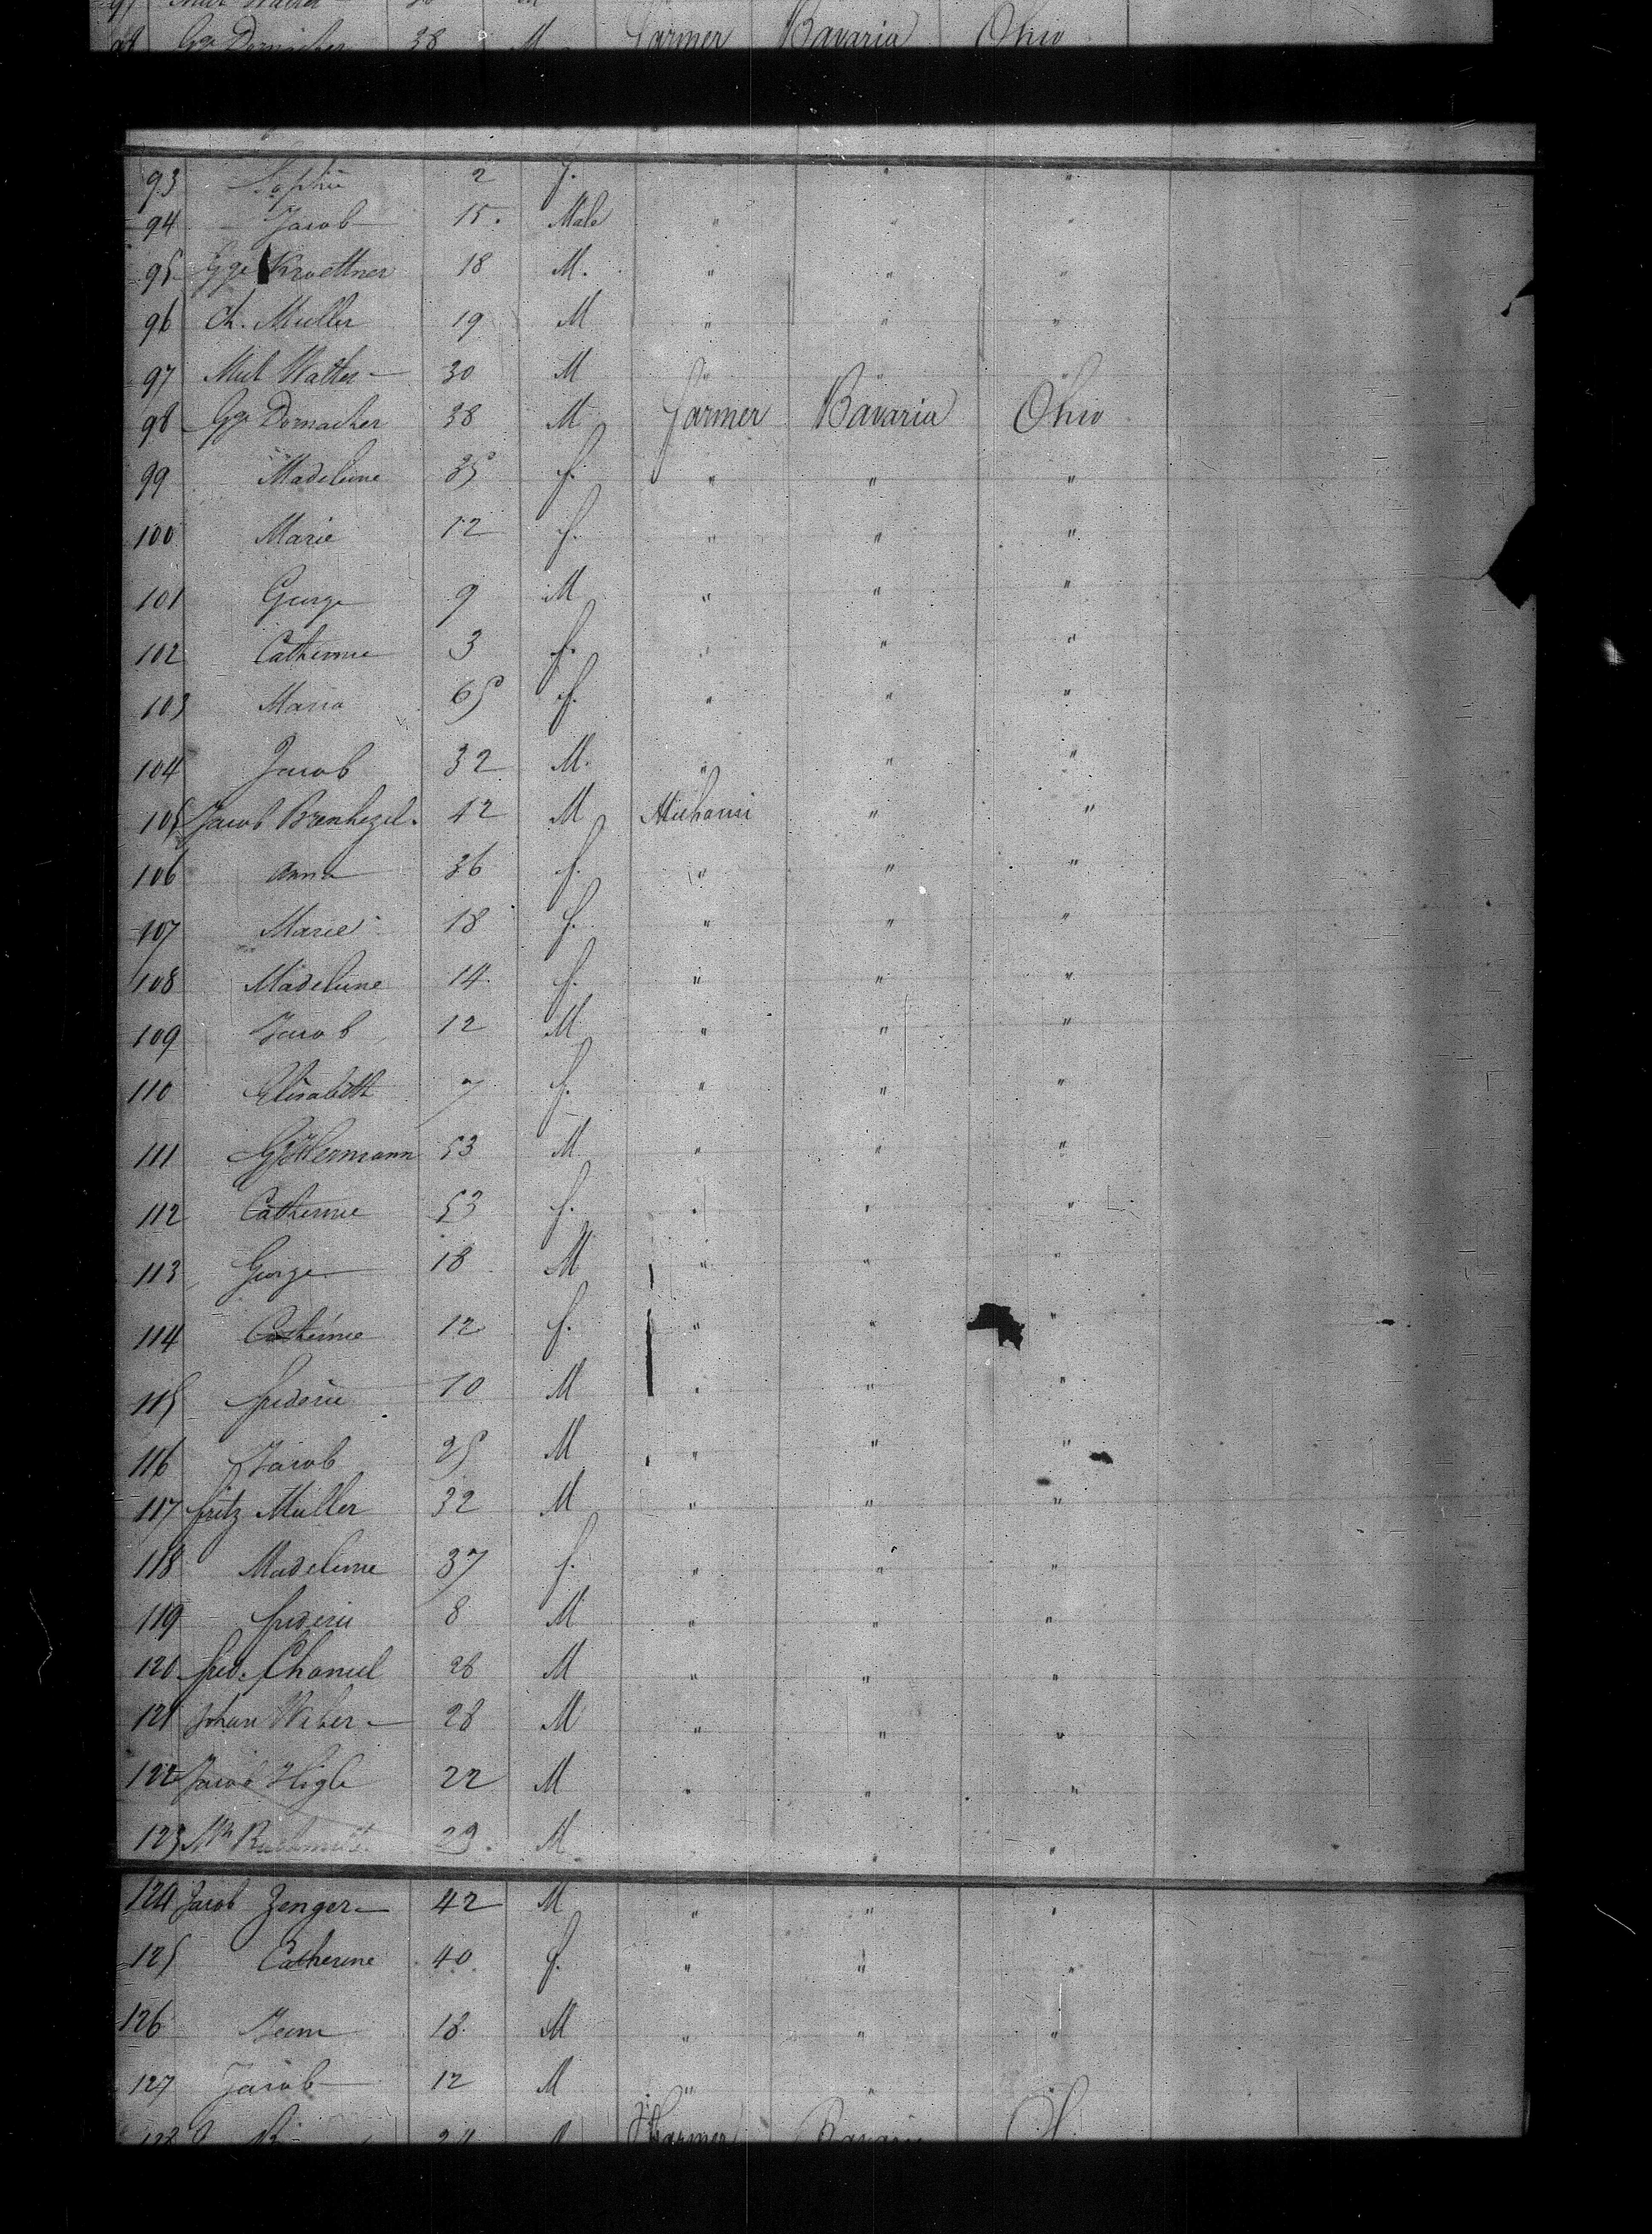 98 Gge Dornacher 38 M Farmer Bavaria Ohio
93 Sophie 2 f. " "
94 Jacob 15. Male " " "
95 Gge Kroettner 18 M. " " "
96 Ch. Muller 19 M " " "
97 Mich Walter 30 M " " "
98 Gge Dornacher 38 M farmer Bavaria Ohio
99 Madeleine 35 f. " " "
100 Marie 12 f. " " "
101 George 9 M " " "
102 Catherine 3 f. " " "
103 Maria 65 f. " " "
104 Jacob 32 M. " " "
105 Jacob 42 M " "
106 Anna 36 f. " " "
107 Marie 18 f. " " "
108 Madeleine 14 f. " " "
109 Jacob 12 M " " "
110 Elisabeth 7 f. " " "
111 Hermann 53 M " " "
112 Catherine 53 f. " " "
113 George 18 M " " "
114 Catherine 12 f. " " "
115 frederic 10 M " " "
116 Jacob 25 M " " "
117 fritz Muller 32 M " " "
118 Madeleine 37 f. " " "
119 frederic 8 M " " "
120 fred. 28 M " " "
121 Johan Weber 28 M " " "
122 Jacob Higle 22 M " " "
123 29. M " "
124 Jacob Zenger 42 M " " "
125 Catherine 40 f. " " "
126 Jean 18 M " " "
127 Jacob 12 M " " "
128 farmer Bavaria